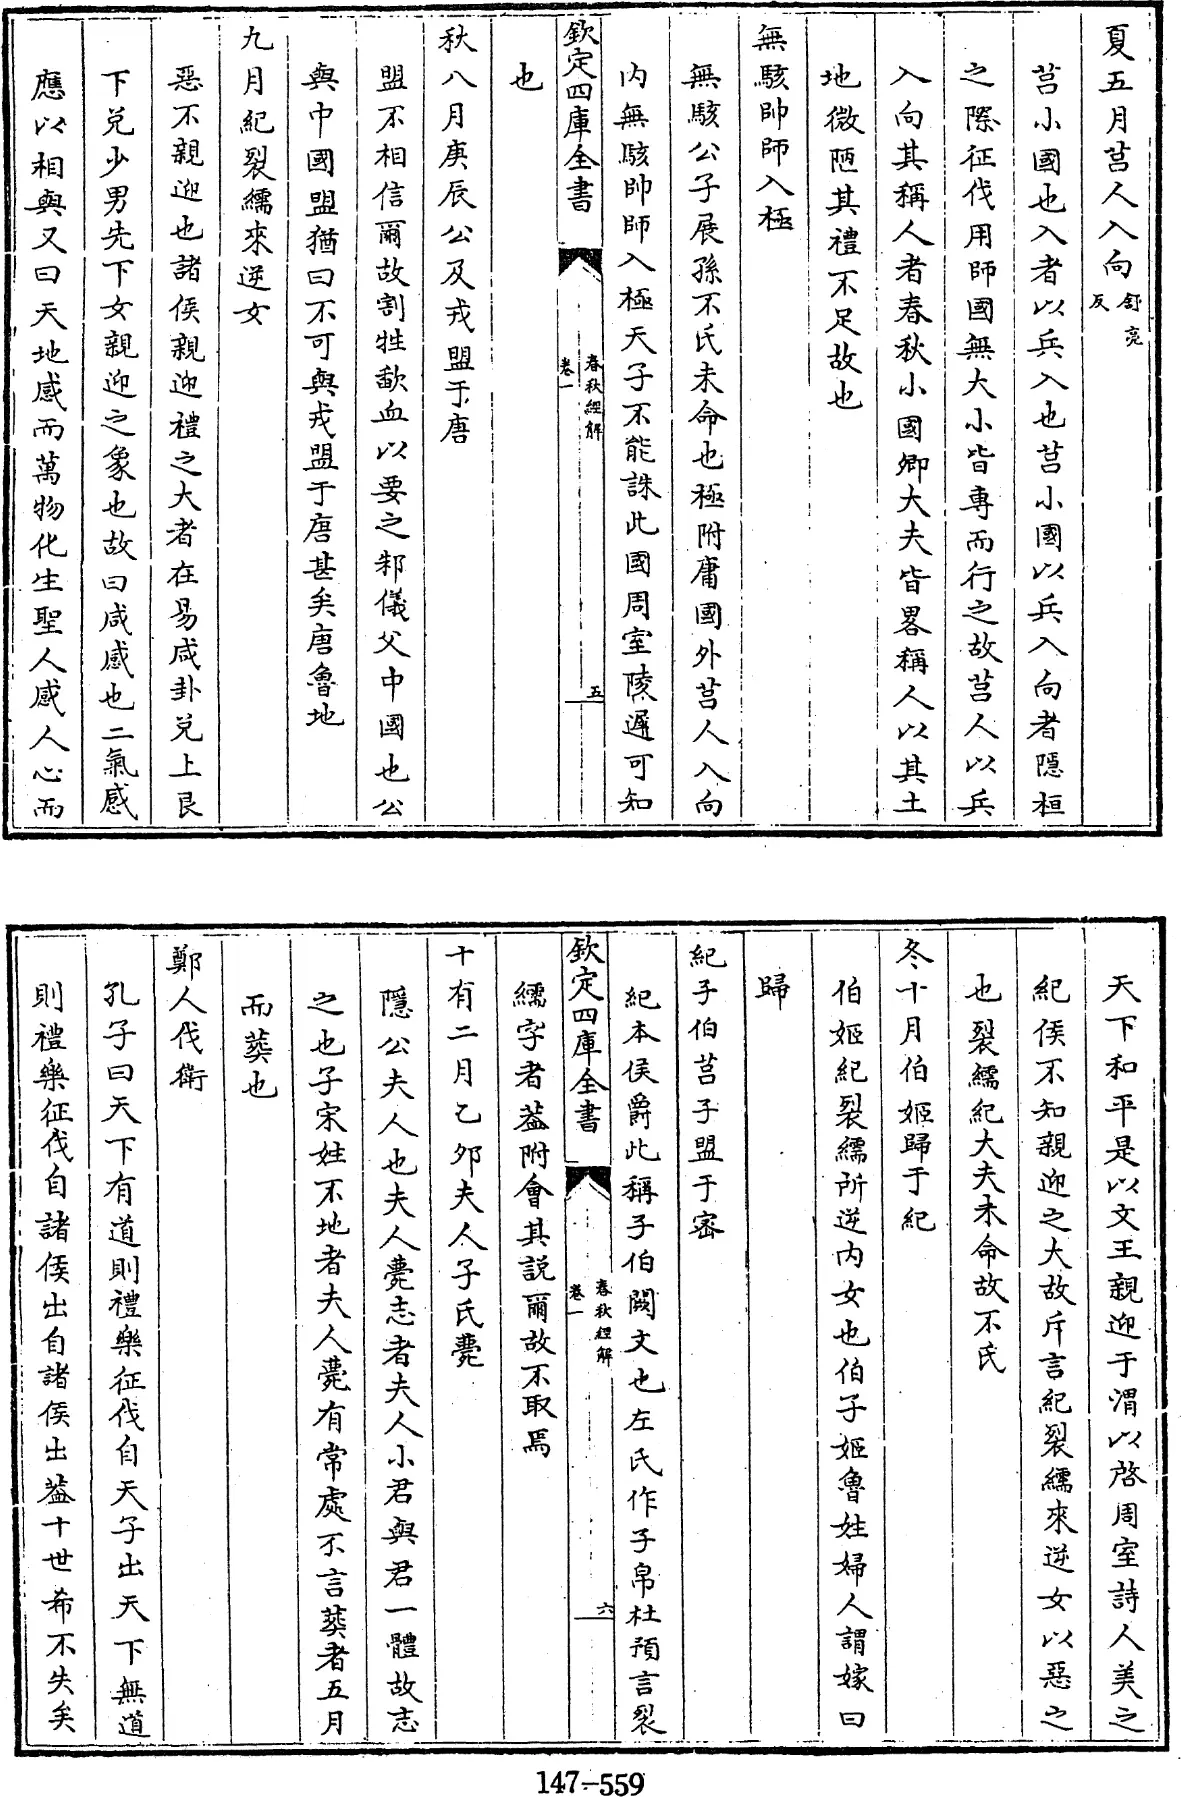 夏五月莒人入向舒亮反
莒小國也入者以兵入也莒小國以兵入向者隱桓
之際征伐用師國無大小皆專而行之故莒人以兵
入向其稱人者春秋小國卿大夫皆畧稱人以其土
地微陋其禮不足故也
無駭帥師入極
無駭公子展孫不氏未命也極附庸國外莒人入向
内無駭帥師入極天子不能誅此國周室陵遲可知
欽定四庫全書
春秋經解
卷一
五
也
秋八月庚辰公及戎盟于唐
盟不相信爾故割牲歃血以要之邾儀父中國也公
與中國盟猶曰不可與戎盟于唐甚矣唐魯地
九月紀裂繻來逆女
惡不親迎也諸侯親迎禮之大者在易咸卦兌上艮
下兌少男先下女親迎之象也故曰咸感也二氣感
應以相與又曰天地感而萬物化生聖人感人心而
天下和平是以文王親迎于渭以啓周室詩人美之
紀侯不知親迎之大故斥言紀裂繻來逆女以惡之
也裂繻紀大夫未命故不氏
冬十月伯姬歸于紀
伯姬紀裂繻所逆内女也伯子姬魯姓婦人謂嫁曰
歸
紀子伯莒子盟于密
紀本侯爵此稱子伯闕文也左氏作子帛杜預言裂
欽定四庫全書
春秋經解
卷一
六
繻字者葢附會其説爾故不取焉
十有二月乙夘夫人子氏薨
隱公夫人也夫人薨志者夫人小君與君一體故志
之也子宋姓不地者夫人薨有常處不言葬者五月
而葬也
鄭人伐衛
孔子曰天下有道則禮樂征伐自天子出天下無道
則禮樂征伐自諸侯出自諸侯出葢十世希不失矣
147-559